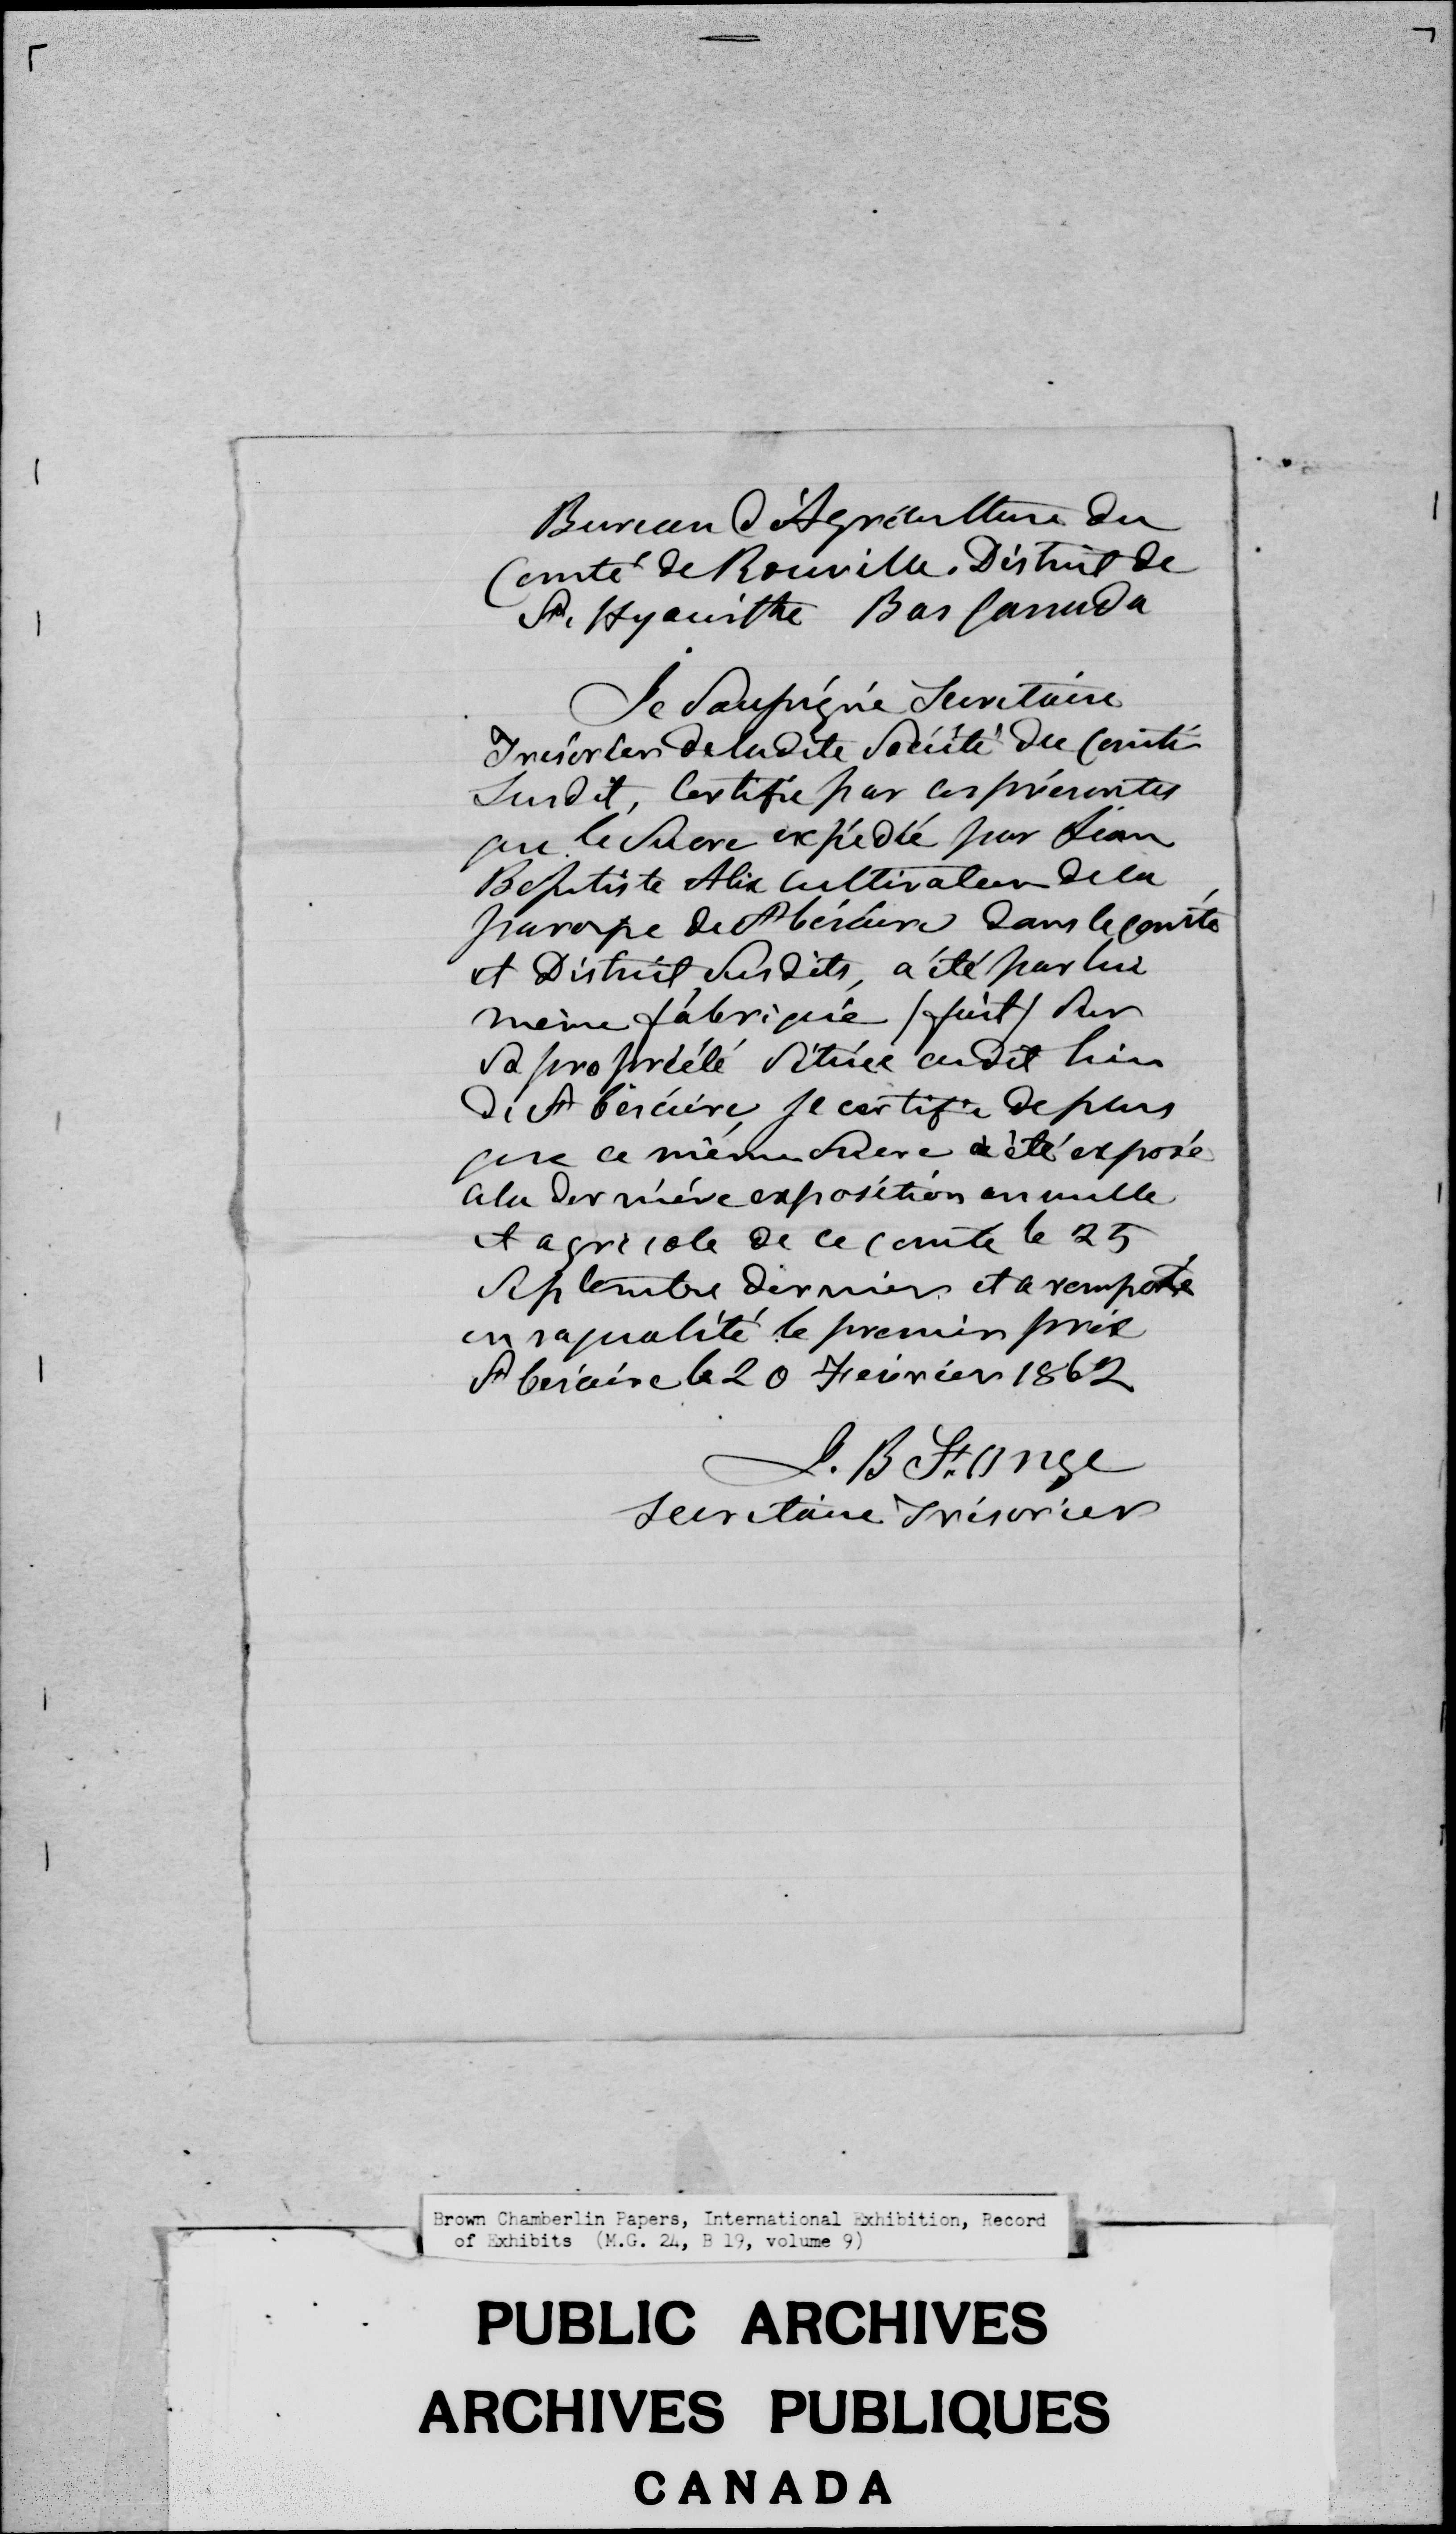 Bureau d'Agriculture du
Comté de Rouville. District de
St. Hyacinthe Bas Canada
Je Soussigné Secretaire
Trésorier de ladite Société du Comté
Susdit, Certifie par ces présentes
que le Sucre expédié par Jean
Baptiste Alix Cultivateur de la
paroisse de St Césaire dans le comté
et District Susdits, a été par lui
même fabriqué (fait) Sur
Sa propriété Située audit lieu
de St Césaire, je certifie de plus
que ce même Sucre a été exposé
a la dernière exposition annuelle
et agricole de ce comté le 25
Septembre dernier et a remporté
en sa qualité le premier prix
St Césaire le 20 Février 1862
J. B St. Onge
Secretaire Trésorier
Brown Chamberlin Papers, International Exhibition, Record
of Exhibits (M.G. 24, B 19, volume 9)
PUBLIC ARCHIVES
ARCHIVES PUBLIQUES
CANADA